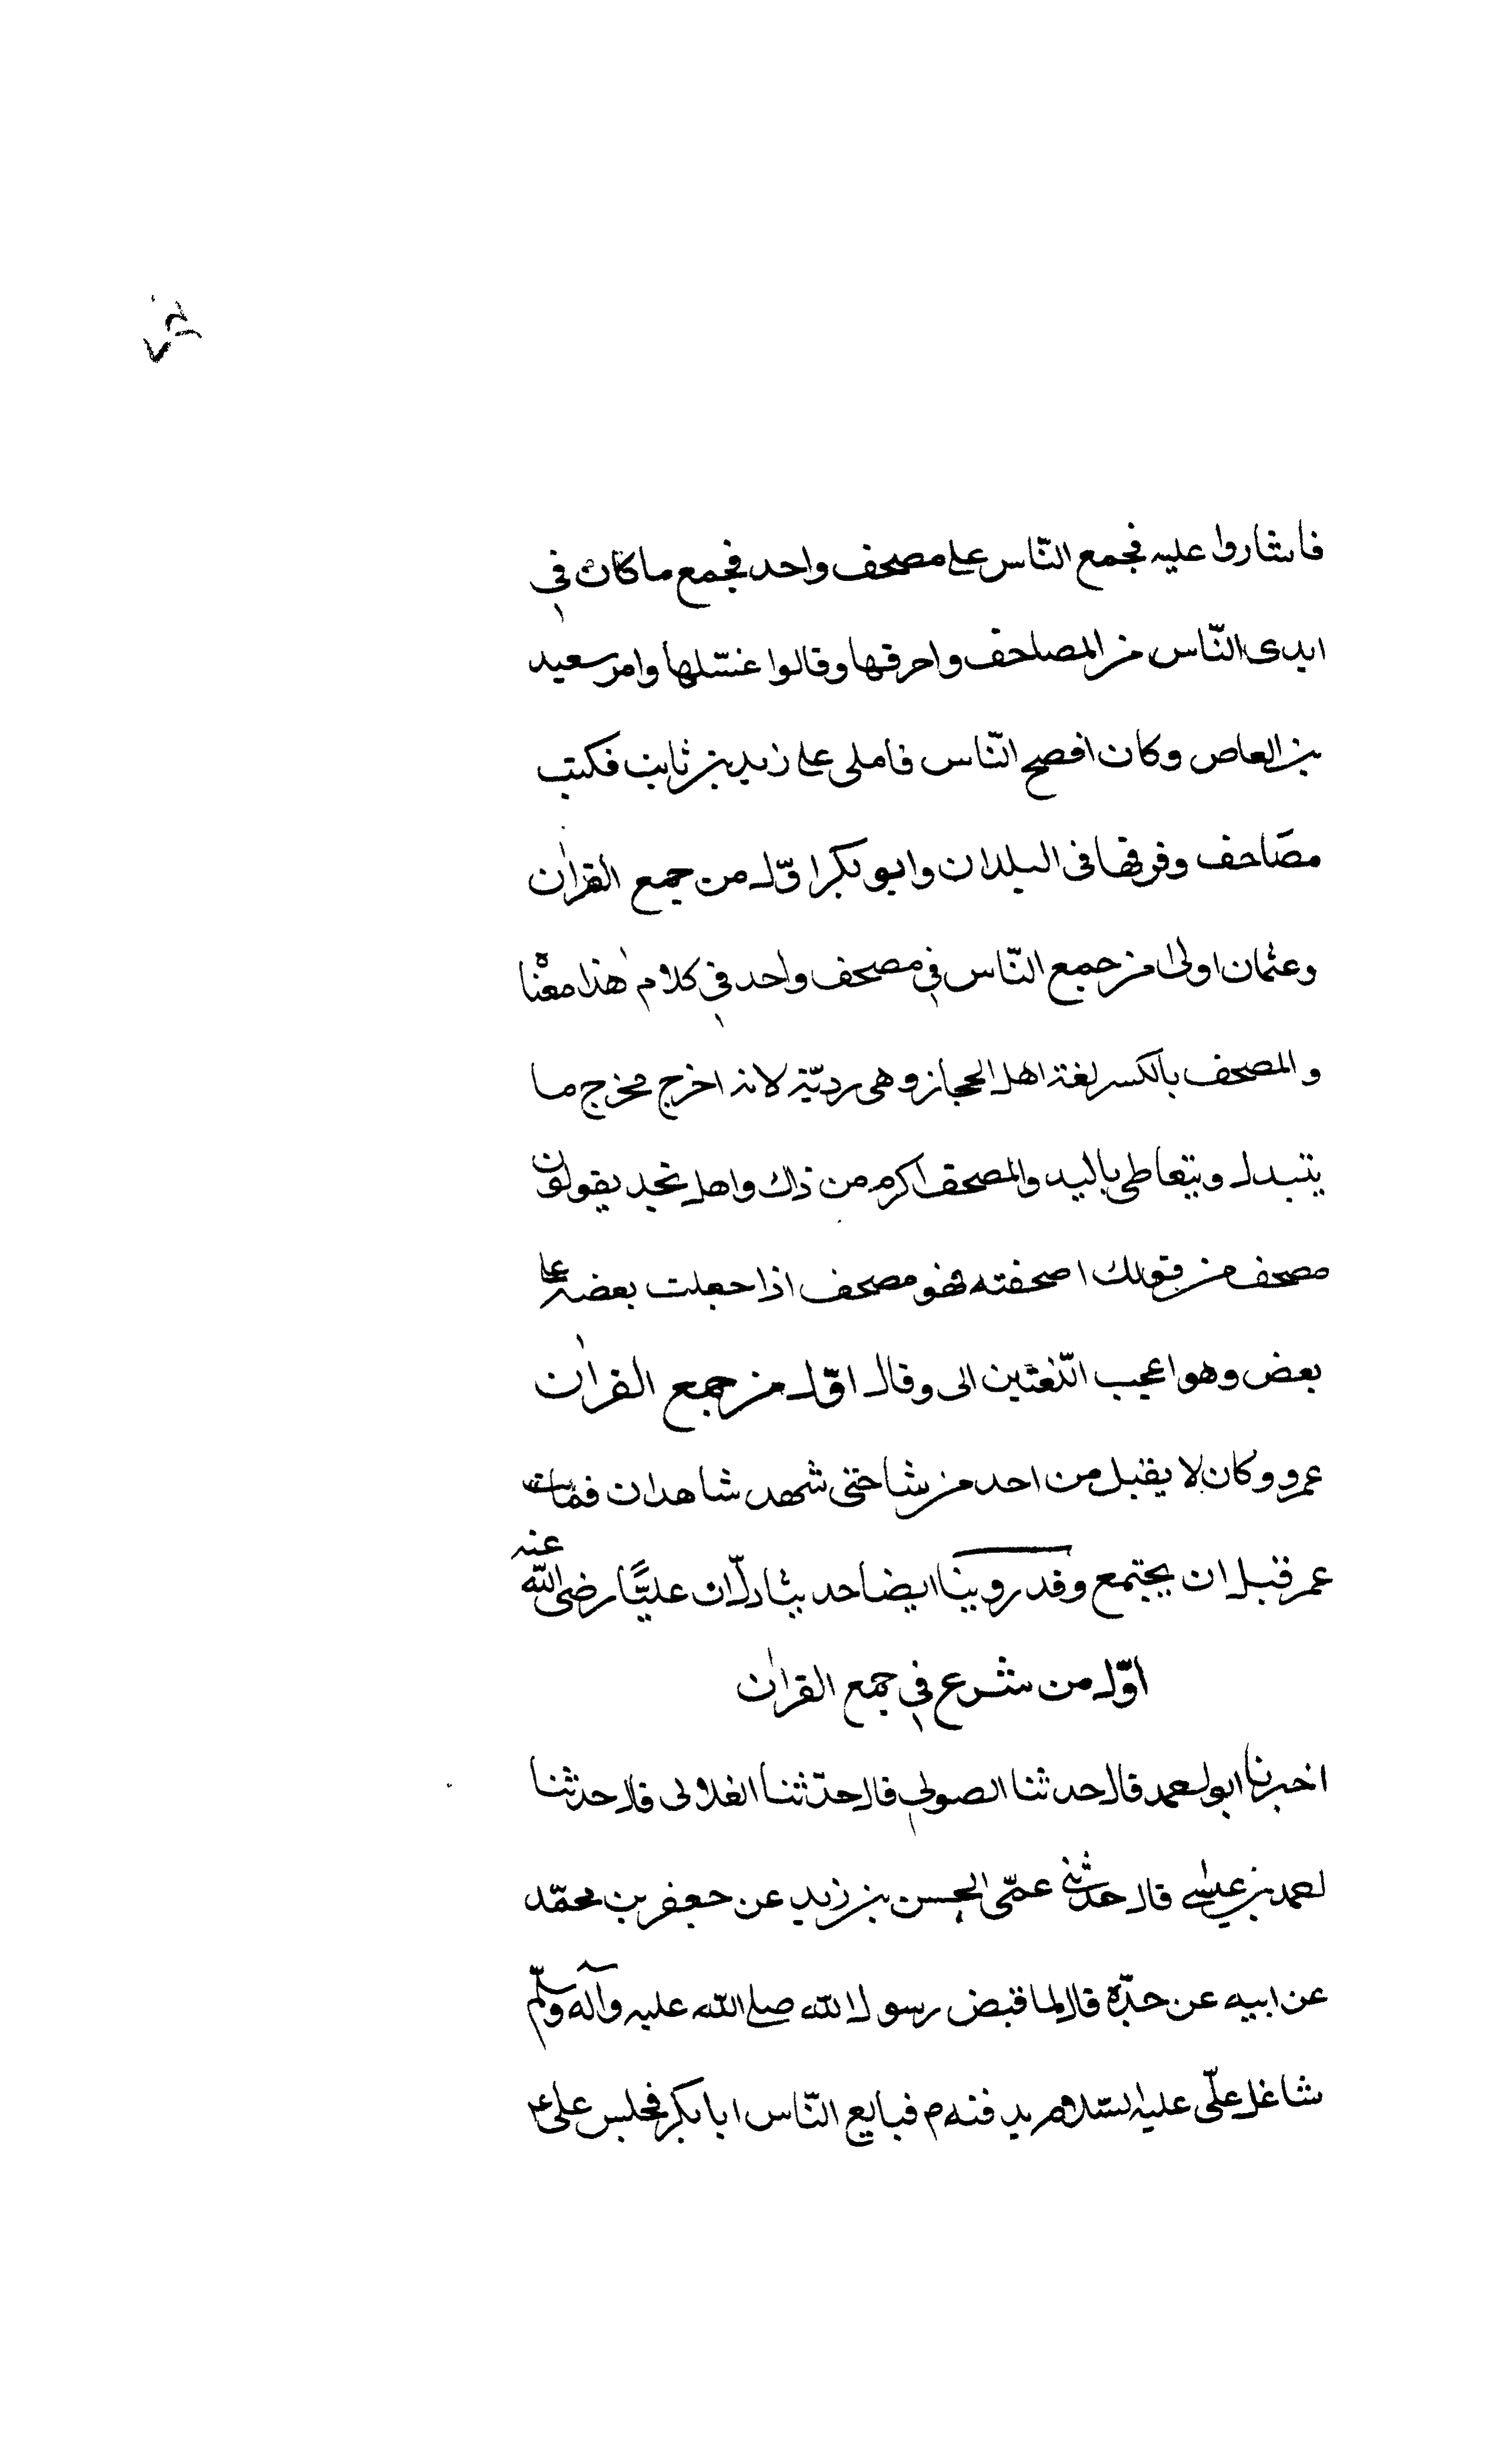 فاشاروا عليه فجمع النّاس على مصحف واحد فجمع ما كان في
ايدى النّاس من المصاحف واحرقها وقالوا غسّلها وامر سعيد
بن العاص وكان افصح النّاس فاملى على زيد بن ثابت فكتب
مصاحف وفرقها فى البلدان وابو بكر اوّل من جمع القران
وعثمان اولى من جمع النّاس في مصحف واحد في كلام هذا معناه
والمصحف بالكسر لغة اهل الحجاز وهى رديّة لانه اخرج مخرج ما
يتبدل ويتعاطى باليد والمصحف اكرم من ذاك واهل نجد يقولون
مصحف من قولك اصحفته فهو مصحف اذا جعلت بعضه على
بعض وهو اعجب اللّغتين الى وقال اوّل من جمع القران
عمر وو كان لا يقبل من احد من شا حتى شهد شاهدان فمات
عمر قبل ان يجتمع وقد روينا ايضا حديثا دلّ ان عليًّا رضى الله عنه
اوّل من شرع في جمع القران
اخبرنا ابو احمد قال حدثنا الصولي قال حدّثنا الغلابى قال حدثنا
احمد بن عيسى قال حدثنى عمّى الحسن بن زيد عن جعفر بن محمّد
عن ابيه عن جدّه قال لما قبض رسول الله صلى الله عليه وآله وسلّم
شاغل علّى عليه السّلام بدفنه م فبايع النّاس ابا بكر فجلس على ع